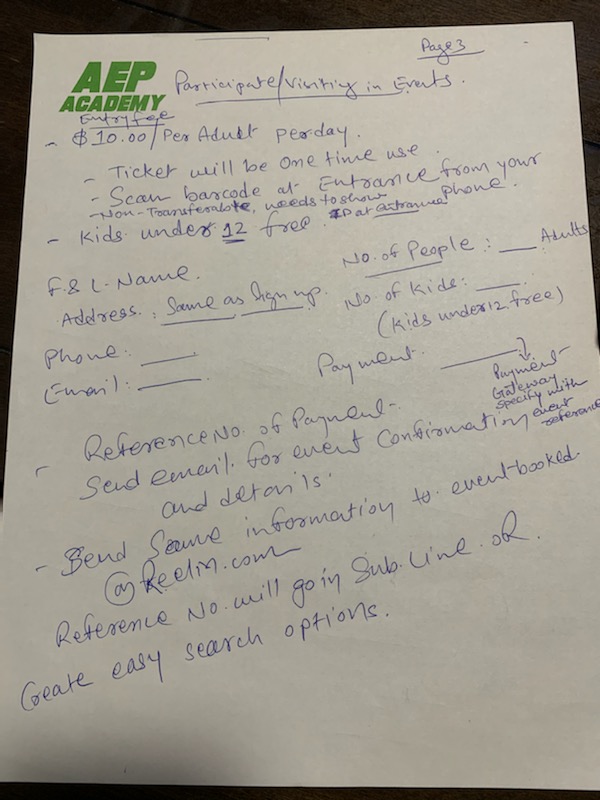 Page 3
AEP
ACADEMY
Participate/Visiting in Events.
Entry fee
- $10.00/Per Adult per day.
- Ticket will be one time use.
- Scan barcode at Entrance from your Phone.
- Non-Transferable, needs to show ID at entrance
- Kids under 12 free.
F & L. Name.
No. of People : ___ Adults
Address : Same as Sign up.
No. of Kids: ___
(Kids under 12 free)
Phone: ___
Payment. ___
Email: ___
Payment
Gateway
specify with
event
reference
- Reference No. of Payment-
Send email for event Confirmation
and details.
- Send Same information to event-booked
@Reelin.com
Reference No. will go in Sub. Line. OR.
Create easy search options.